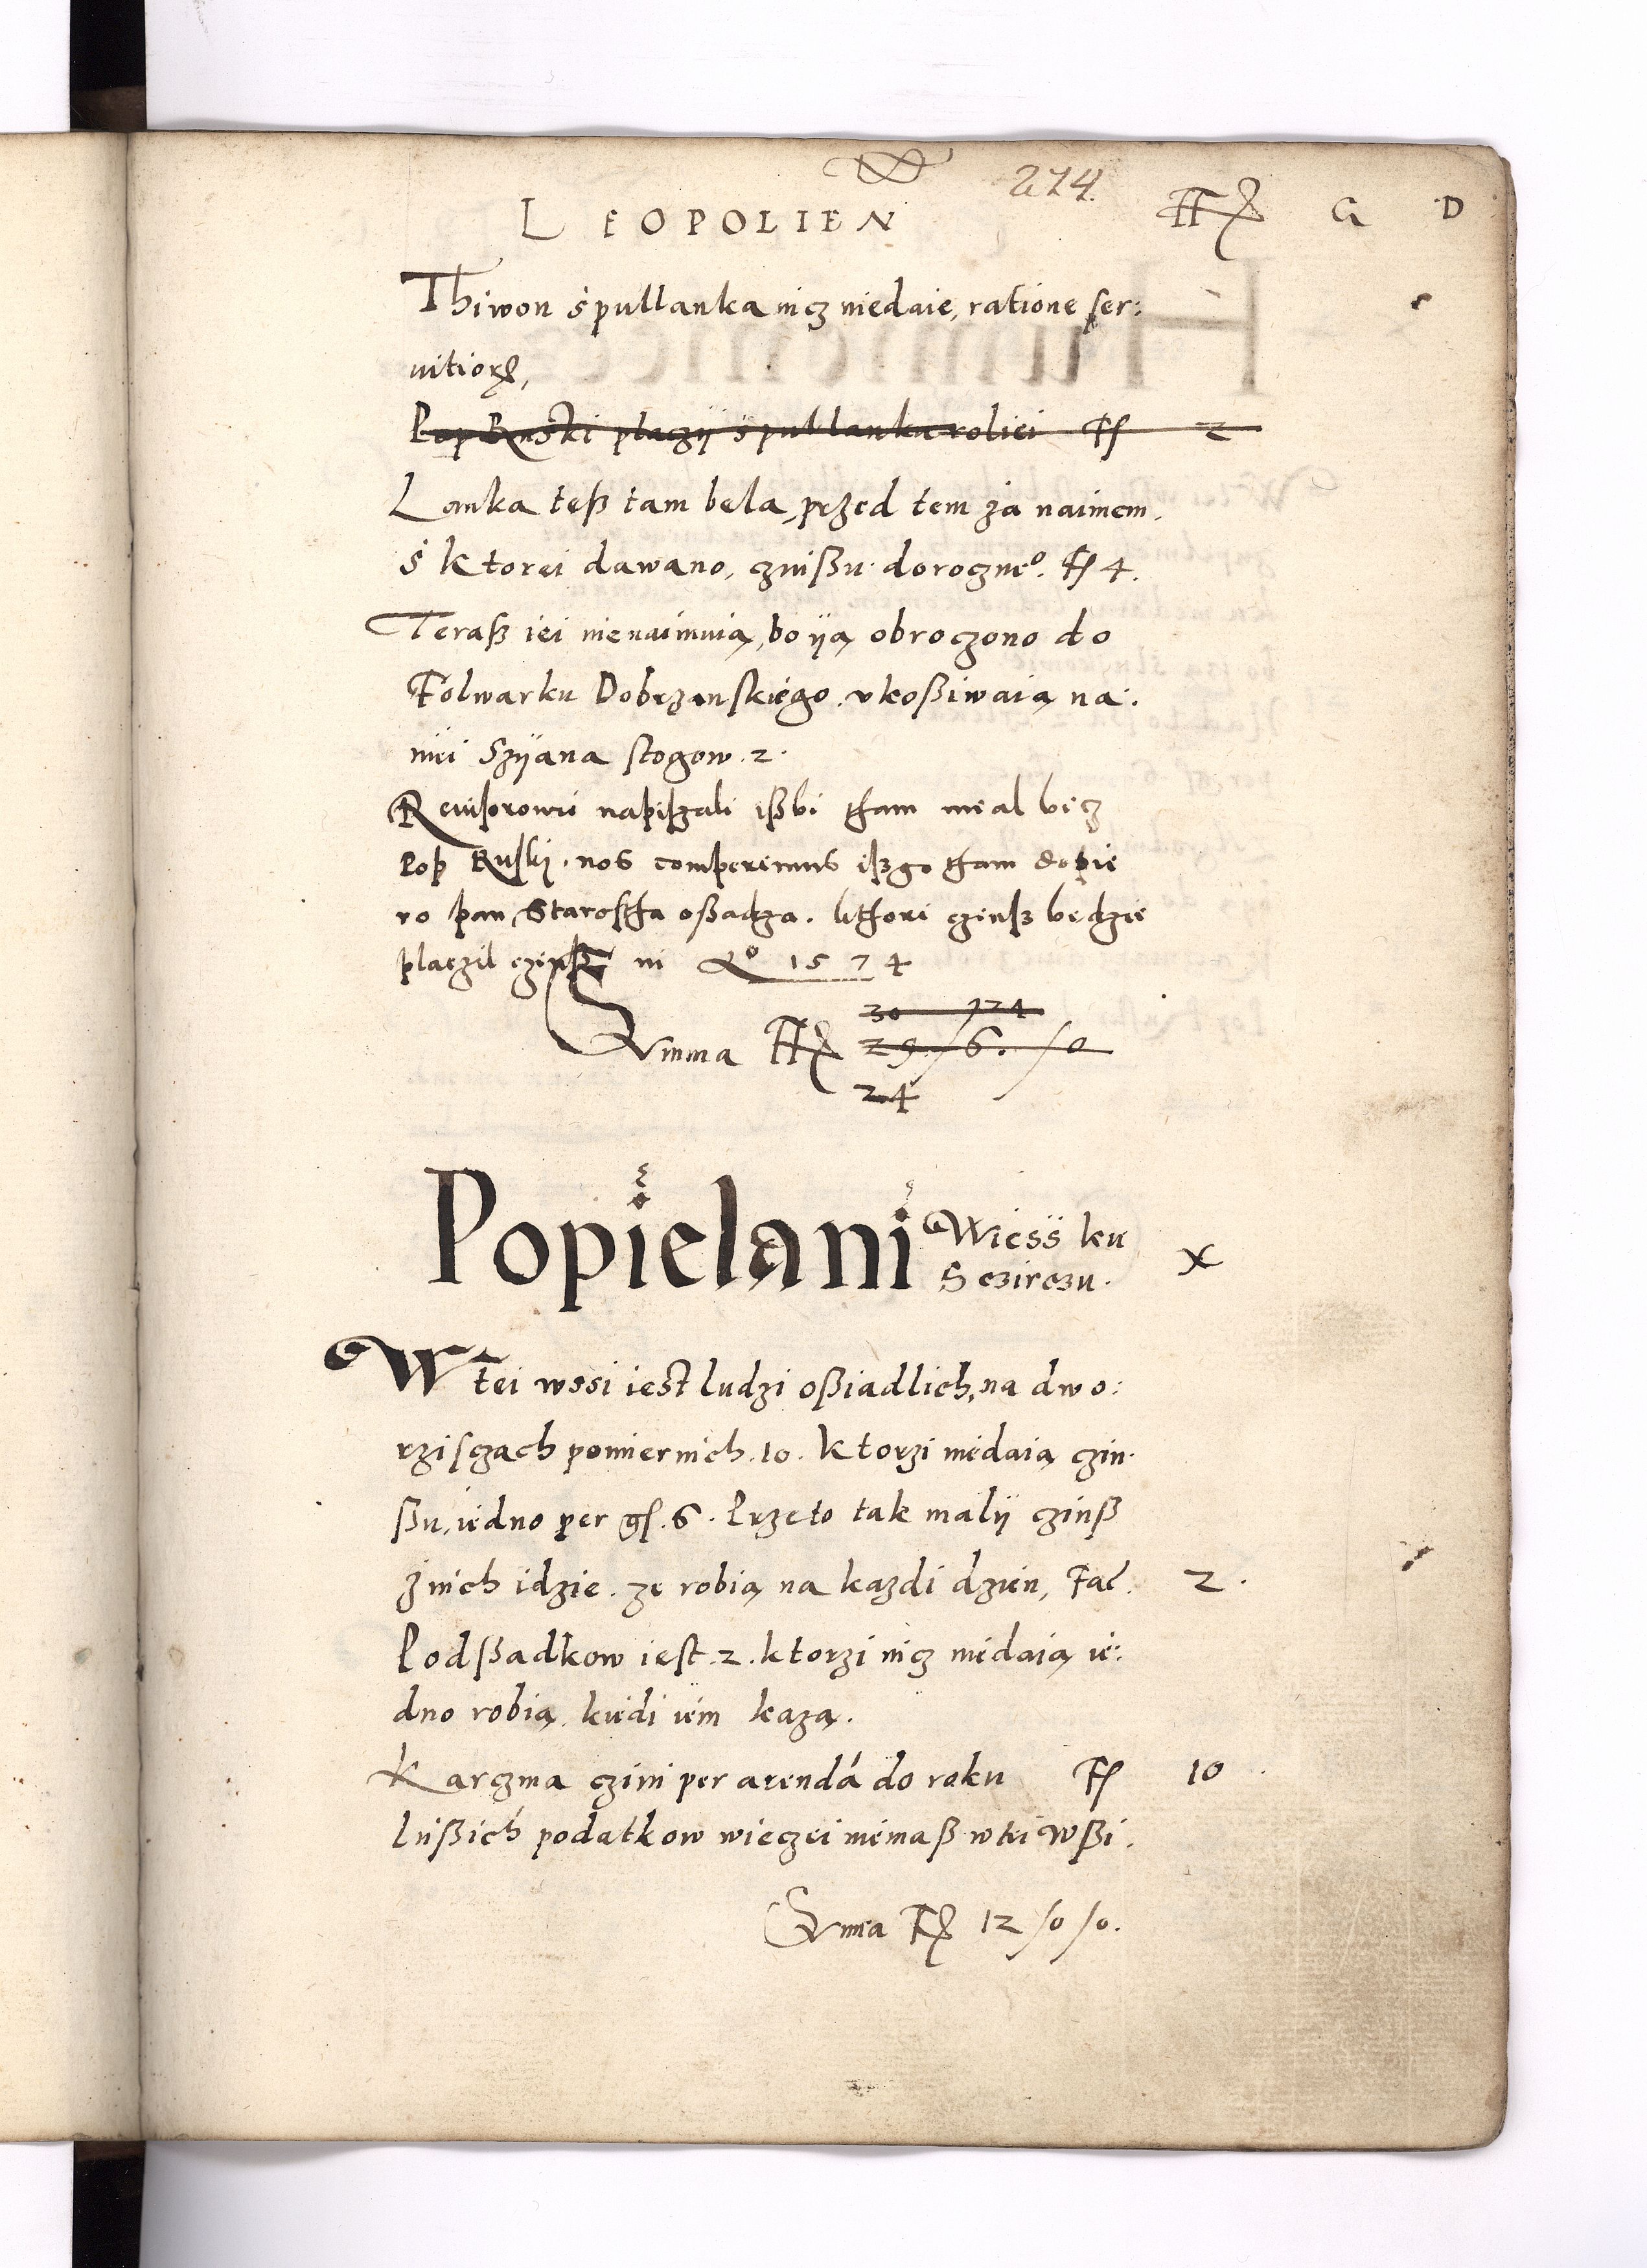 274.
LEOPOLIEN Fł G D
Thiwon s pullanka nicz niedaie, ratione ser:
uitioꝝ,
Pop Ruski placzÿ s pullanku roliei Fł 2
Lanka teß tam bela, przed tem za naimem,
s ktorei dawano, czinßu doroczneº. Fł 4.
Teraß iei nienaimuią, bo ÿą obroczono do
Folwarku Dobrzanskiego. vkoßiwaią na:
niei Szÿana stogow. 2.
Reuisorowie napiszali ißbi tham mieal bicz
Pop Ruski. nos comperimus iszgo tham dopie
ro pan Starostha oßadza. kthori czinsz bedzie
placzil czinsz in Aº 1574
30 /24
Summa Fł 29/6./0
24
Popielani Wiess ku
Sczirczu. X
W tei wssi iest ludzi oßiadlich, na dwo:
rziſczach pomiernich. 10. ktorzi niedaią czin:
ßu, iedno per gſ. 6. Przeto tak malÿ czinß
znich idzie. ze robią na kazdi dzien, Fac. 2.
Podßadkow iest. 2. ktorzi nicz niedaią ie:
dno robią, kiedi iem kazą.
Karczma czini per arendá do roku Fł 10
Inßich podatkow wieczei niemaß w tei wßi.
Suma Fł 12/0/0.